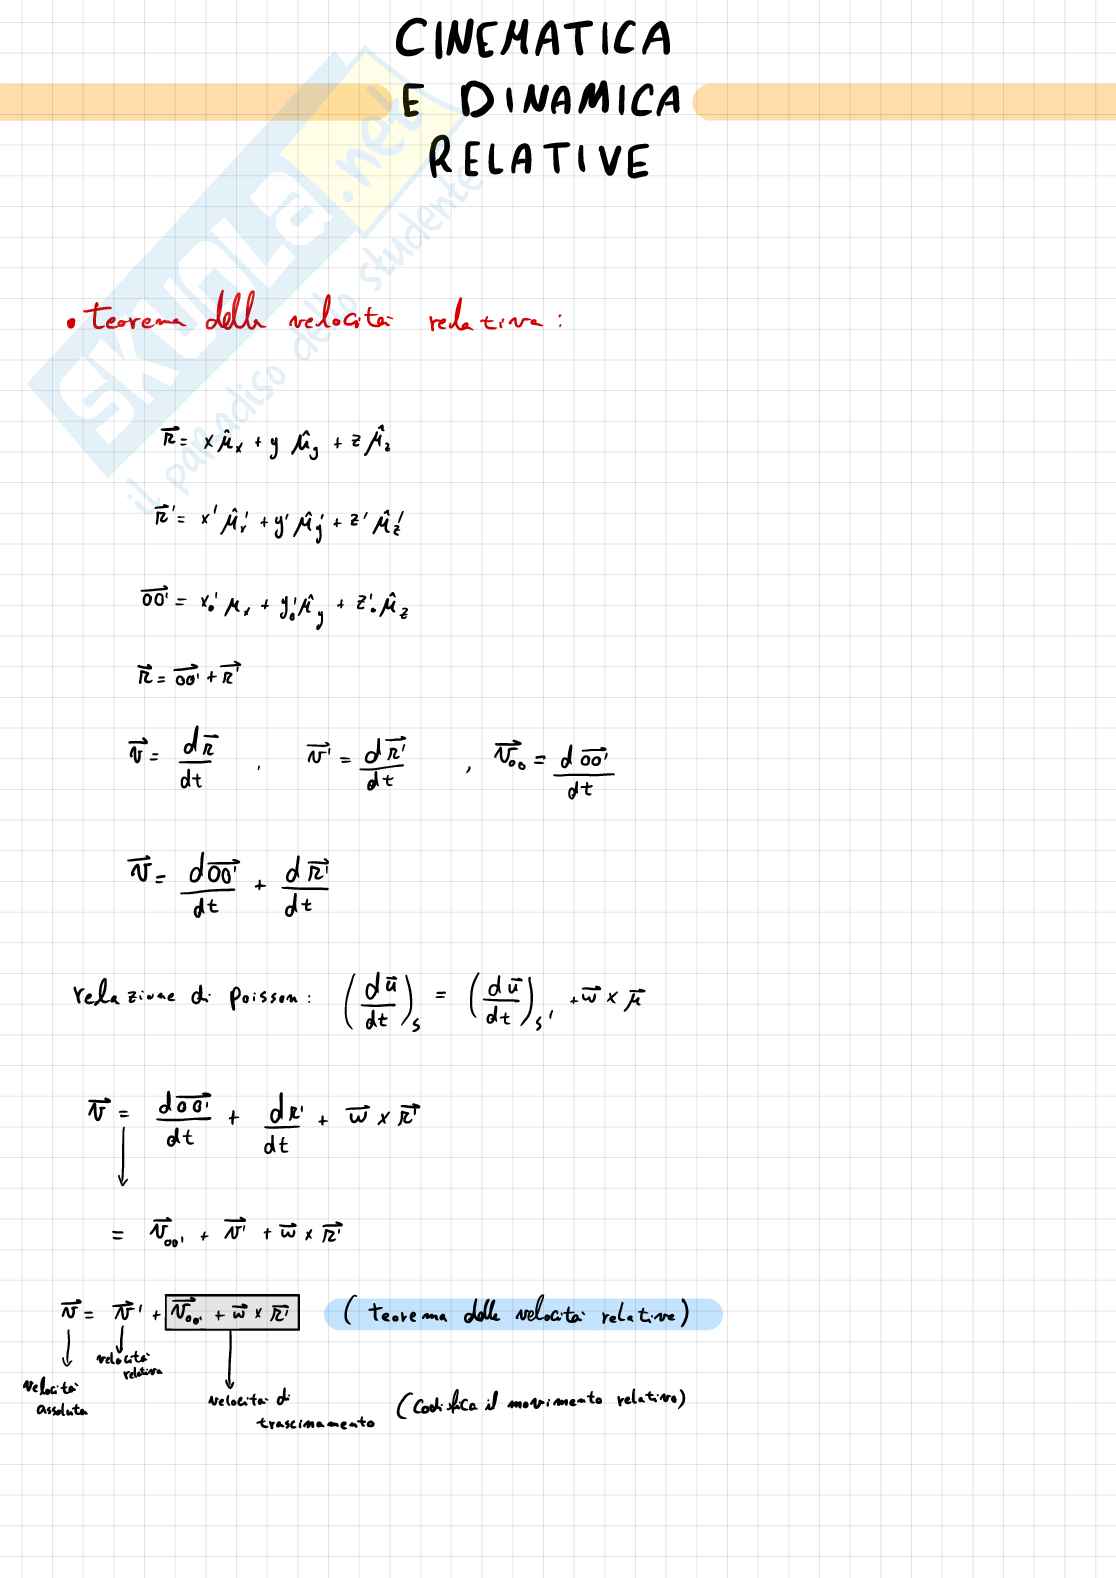 CINEMATICA
E DINAMICA
RELATIVE
SKUOLA.net
il paradiso dello studente
• teorema delle velocità relativa :
r⃗ = x μ̂x + y μ̂y + z μ̂z
r⃗' = x' μ̂x' + y' μ̂y' + z' μ̂z'
OO'⃗ = x₀' μx + y₀' μ̂y + z'₀ μ̂z
r⃗ = OO'⃗ + r⃗'
v⃗ = dr⃗/dt , v⃗' = dr⃗'/dt , v⃗oo = dOO'⃗/dt
v⃗ = dOO'⃗/dt + dr⃗'/dt
relazione di Poisson: (du⃗/dt)S = (du⃗/dt)S' + ω⃗ × μ⃗
v⃗ = dOO'⃗/dt + dr'/dt + ω⃗ × r⃗'
= v⃗oo' + v⃗' + ω⃗ × r⃗'
v⃗ = v⃗' + v⃗oo' + ω⃗ × r⃗' (teorema delle velocità relative)
velocità relativa
velocità assoluta
velocità di trascinamento (codifica il movimento relativo)